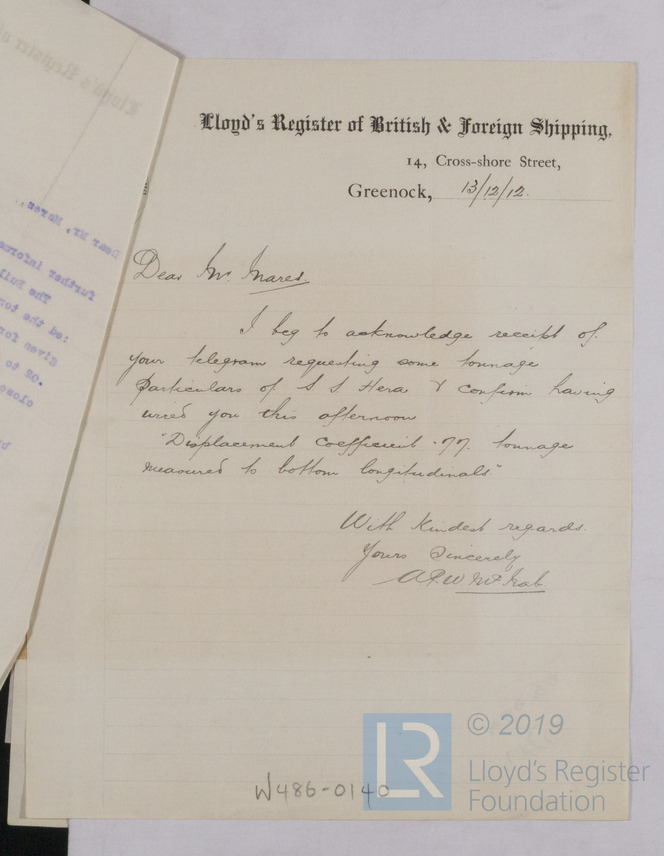 Lloyd's Register of British & Foreign Shipping,
14, Cross-shore Street,
Greenock, 13/12/12.
Dear Mr. Mares.
I beg to acknowledge receipt of
your telegram requesting some tonnage
particulars of S S Hera & confirm having
wired you this afternoon
"Displacement Coefficient .77. tonnage
measured to bottom longitudinals"
With kindest regards.
Yours Sincerely
W486-0140
LR
© 2019
Lloyd's Register
Foundation
Dear Mr. Mares,
further inform
The Buil